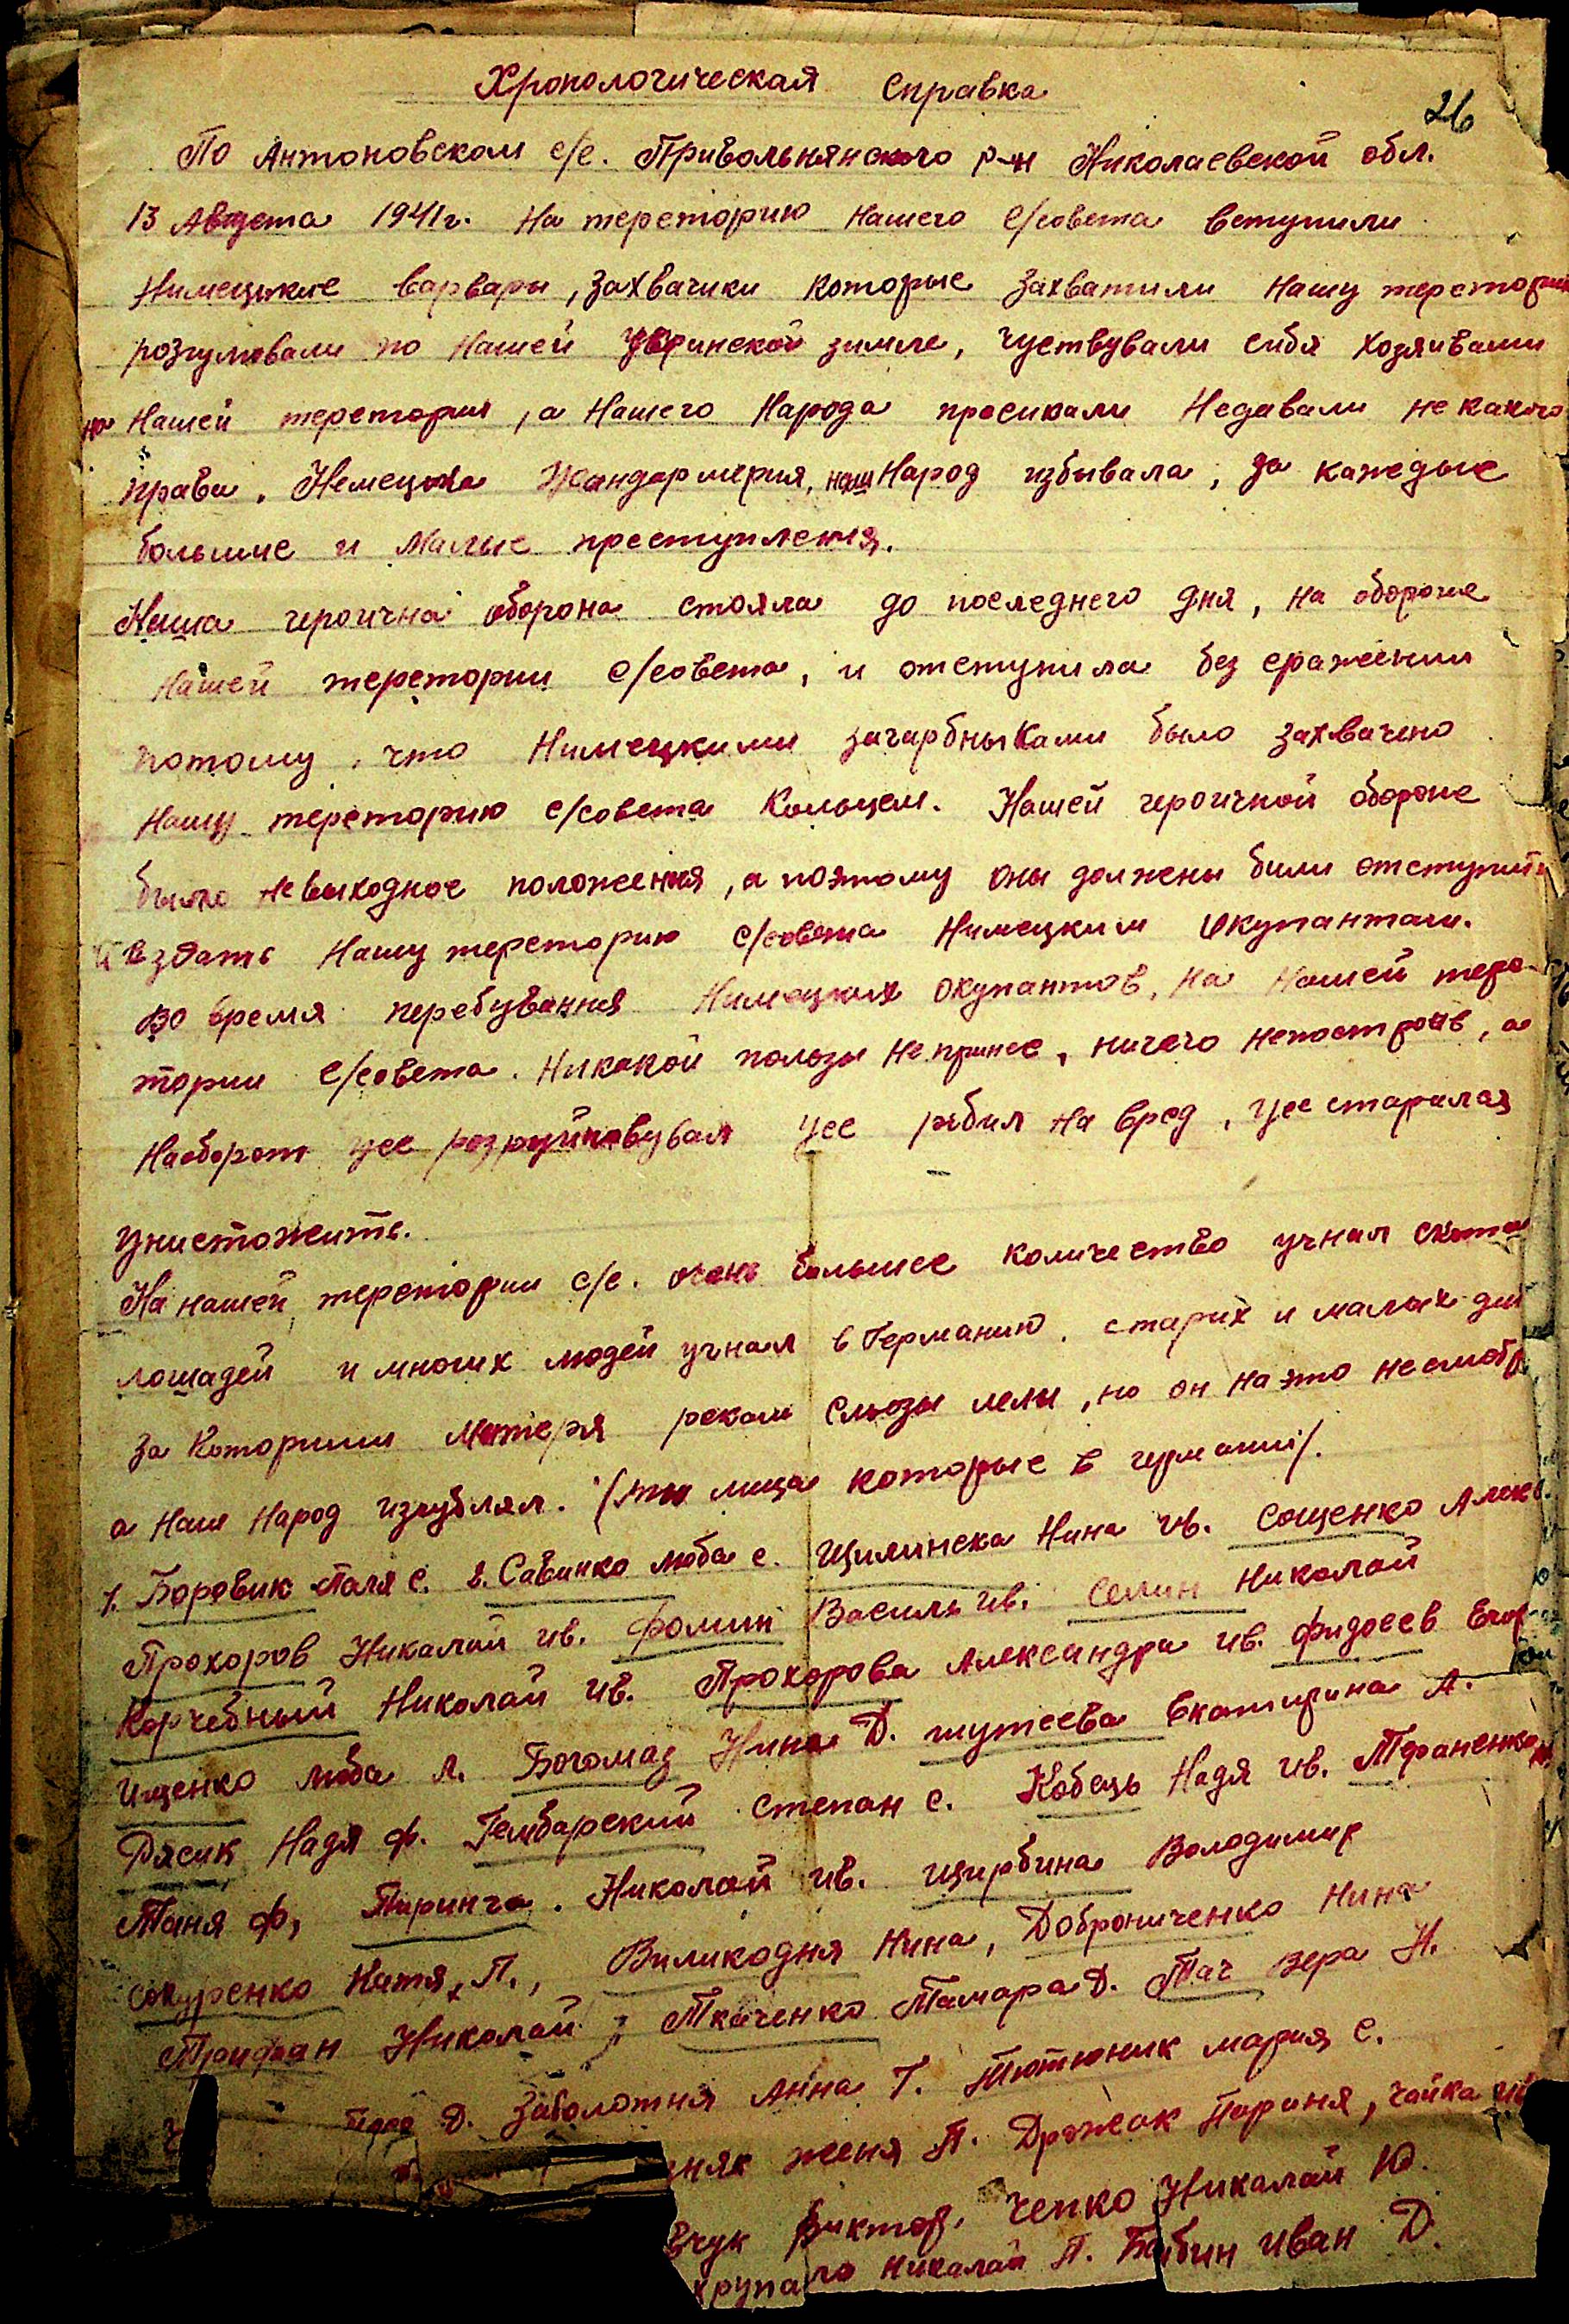 Хронологическая справка
26
По Антоновском с/с. Привольнянского р-н Николаевской обл.
13 Августа 1941 г. на тереторию нашего с/совета вступили
Нимецькие варвары, захвачики которые захватили нашу тереторию
розгулювали по нашей Украинской зимле, чуствували сибя хозяивами
на нашей теретории, а нашего народа просикали недавали некакого
права. Немецька Жандармерия, наш Народ избывала, за каждые
большие и малые преступления.
Наша героична оборона стояла до последнего дня, на обороне
нашей теретории с/совета, и отступила без сражении
потому, что Нимецкими загарбныками было захвачено
нашу тереторию с/совета кольцем. Нашей героичной обороне
было невыходное положения, а поэтому оны должены били отступить
и здать нашу тереторию с/совета Нимецким окупантам.
Во время перебування Нимецких окупантов, на нашей тере-
тории с/совета. Никакой пользы не принес, ничего непостроів, а
наоборот усе розруйновувал усе робил на вред, усе старался
унистожить.
На нашей теретории с/с. очень большое количество угнал скота
лошадей и многих людей угнал в Германию. старих и малых дит
за которими матеря рекам сльозы лелы, но он на это несмотр
а наш народ изгублял. (эты лица которые в германии).
1. Боровик Галя с. 2. Савинко люба с. Щилинска Нина ив. Сощенко Алекс.
Прохоров Николай ив. Фомин Василь ив. Семин Николай
Корчебный Николай ив. Прохорова Александра ив. Фидосев Егор
Ищенко люба л. Богомаз Нина Д. шутеева Екатирина А.
Дясик Надя ф. Гембарский Степан с. Кобець Надя ив. Трфаненко
Таня ф, Пиринга. Николай ив. щирбина Володимир
сокуренко Катя, П., Виликодня Нина, Доброниченко Нина
Трифан Николай, Ткаченко Тамара Д. Тач Вера Н.
Д. Заболотня Анна Т. Тютюник мария С.
зняк женя П. Дрожак Параня, чайка ив
вчук Виктор, Чепко Николай Ю.
крупа Николай П. Бабин Иван Д.